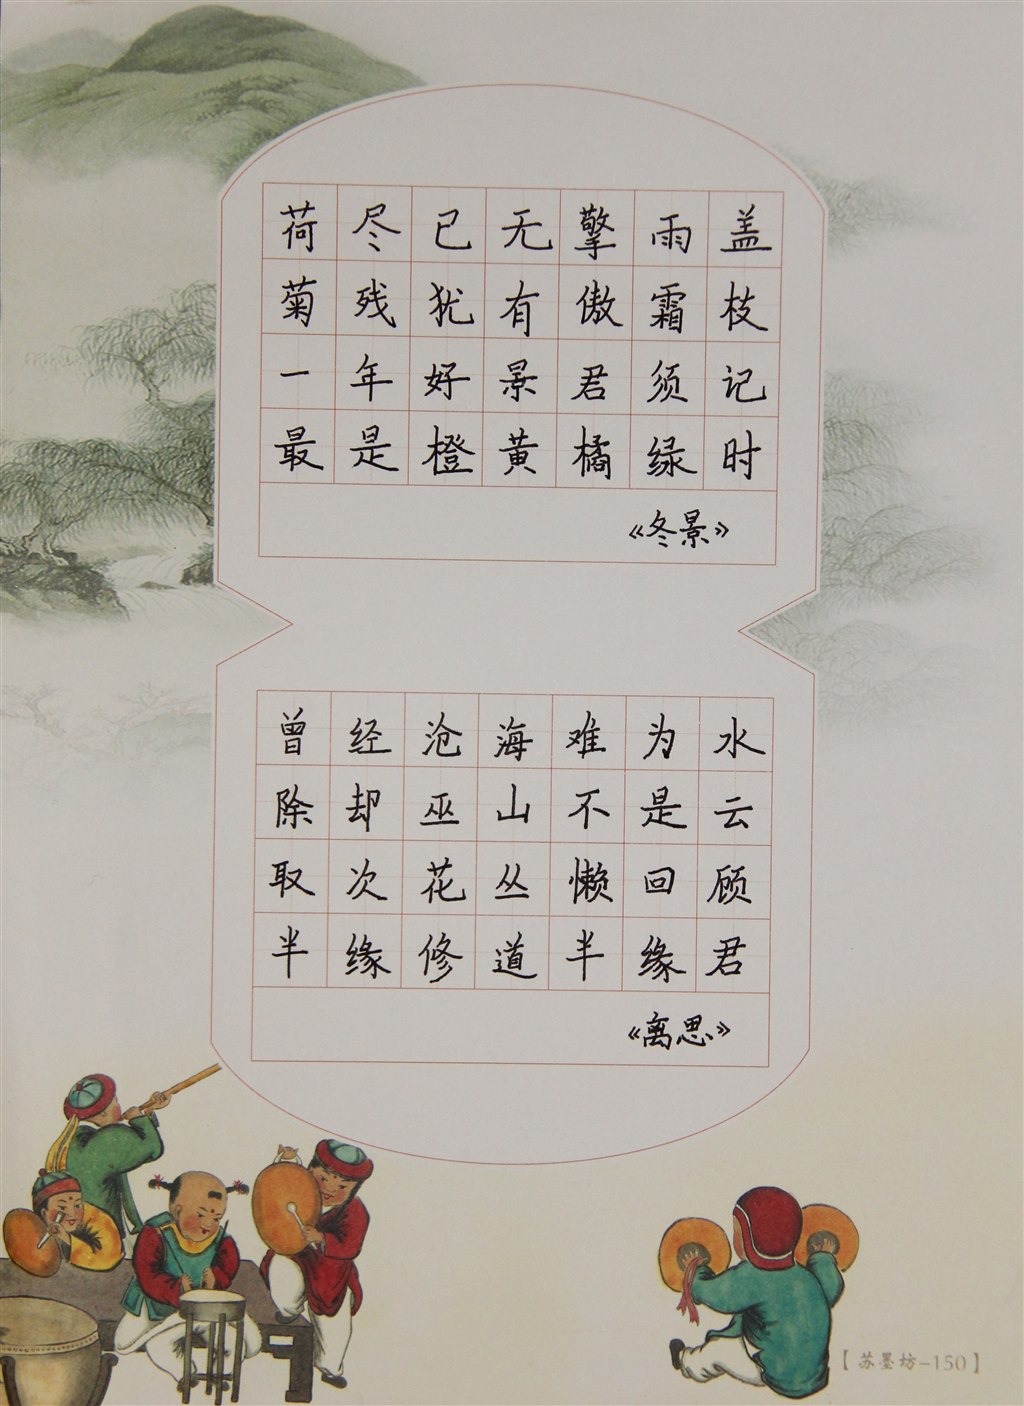 荷尽已无擎雨盖
菊残犹有傲霜枝
一年好景君须记
最是橙黄橘绿时
《冬景》
曾经沧海难为水
除却巫山不是云
取次花丛懒回顾
半缘修道半缘君
《离思》
【苏墨坊-150】